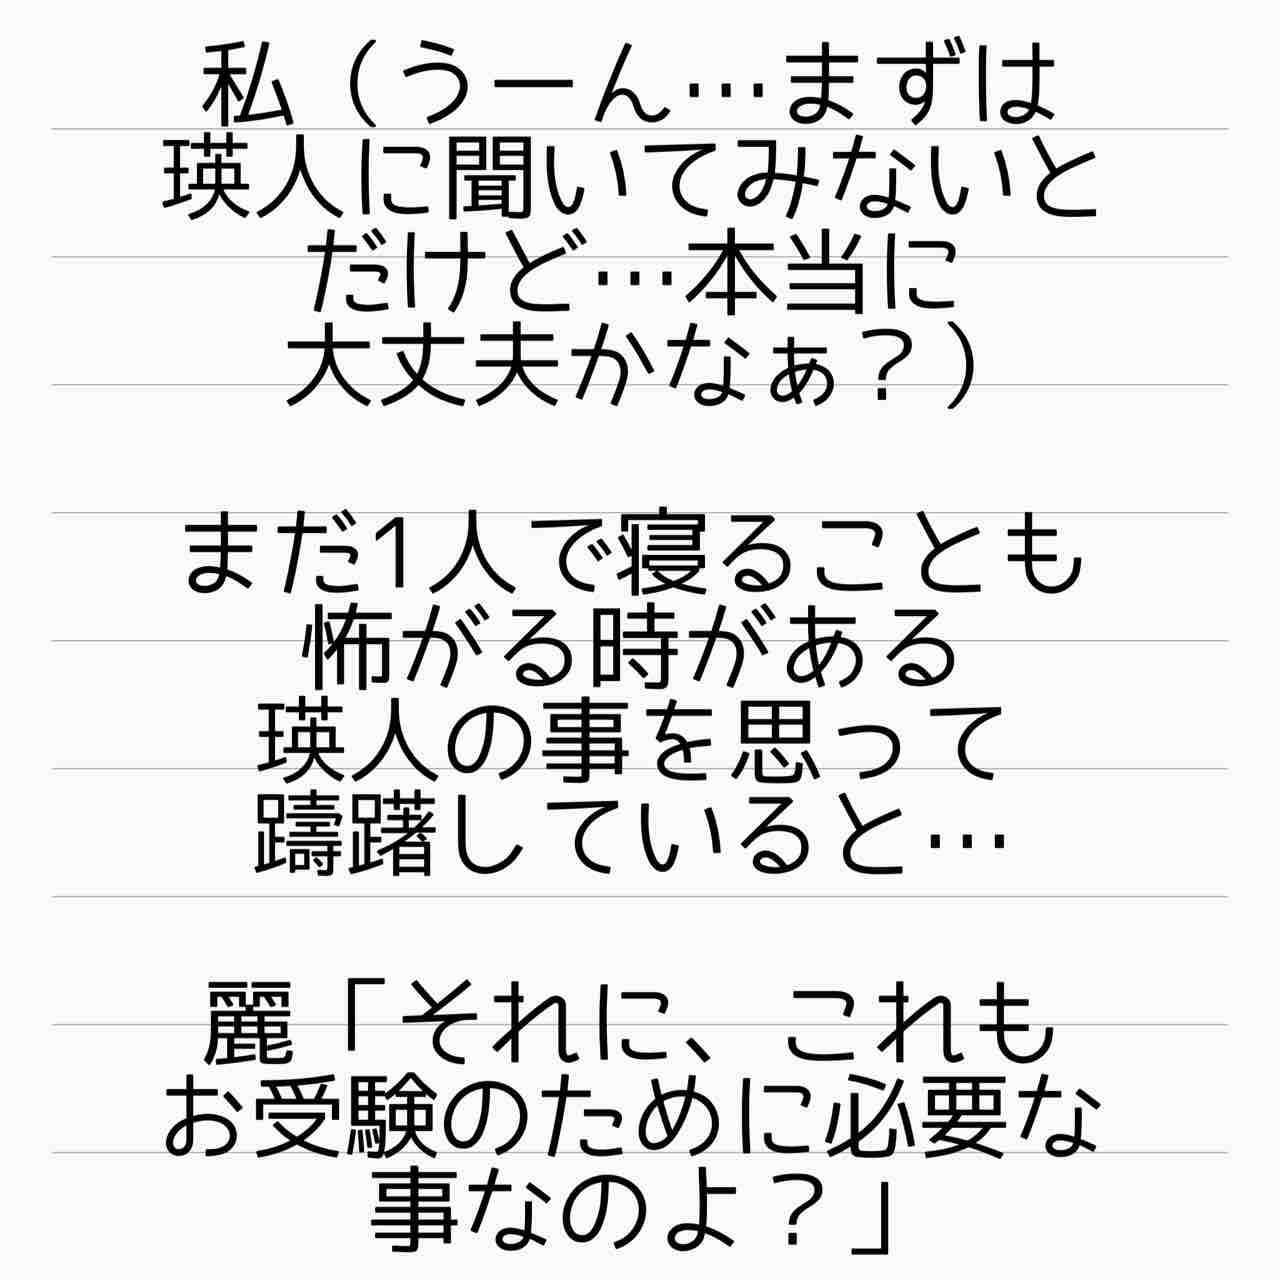 私（うーん…まずは
瑛人に聞いてみないと
だけど…本当に
大丈夫かなぁ？）
まだ1人で寝ることも
怖がる時がある
瑛人の事を思って
躊躇していると…
麗「それに、これも
お受験のために必要な
事なのよ？」